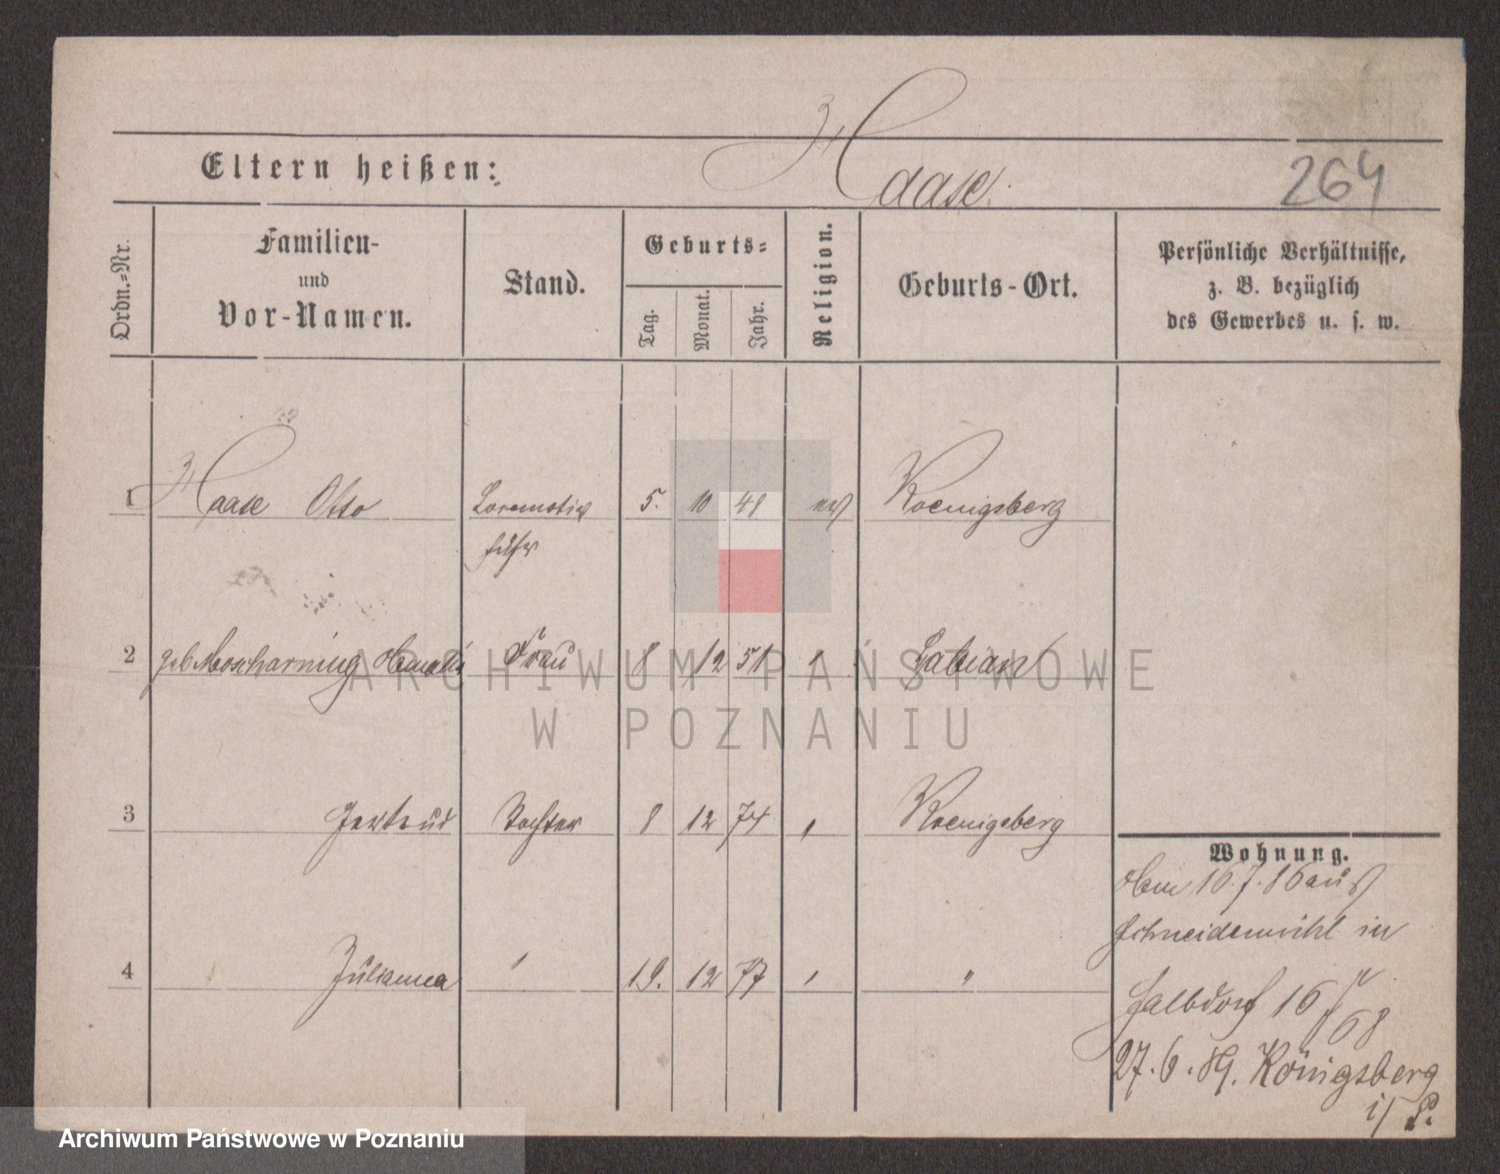 Haase.
Eltern heißen:
264
Ordn.-Nr.
Familien-
und
Vor-Namen.
Stand.
Geburts-
Tag.
Monat.
Jahr.
Religion.
Geburts-Ort.
Persönliche Verhältnisse,
z. B. bezüglich
des Gewerbes u. s. w.
1 Haase Otto Locomotiv 5. 10 48 ev Koenigsberg
führ
2 geb Frau 8 12 51 " Labiau
ARCHIWUM PAŃSTWOWE
W POZNANIU
3 Gertrud Tochter 8 12 74 " Koenigsberg
Wohnung.
16.7.86 aus
Schneidemühl in
4 Julianna " 19. 12 77 " "
16/
68
27.6.89. Königsberg
i/ P.
Archiwum Państwowe w Poznaniu